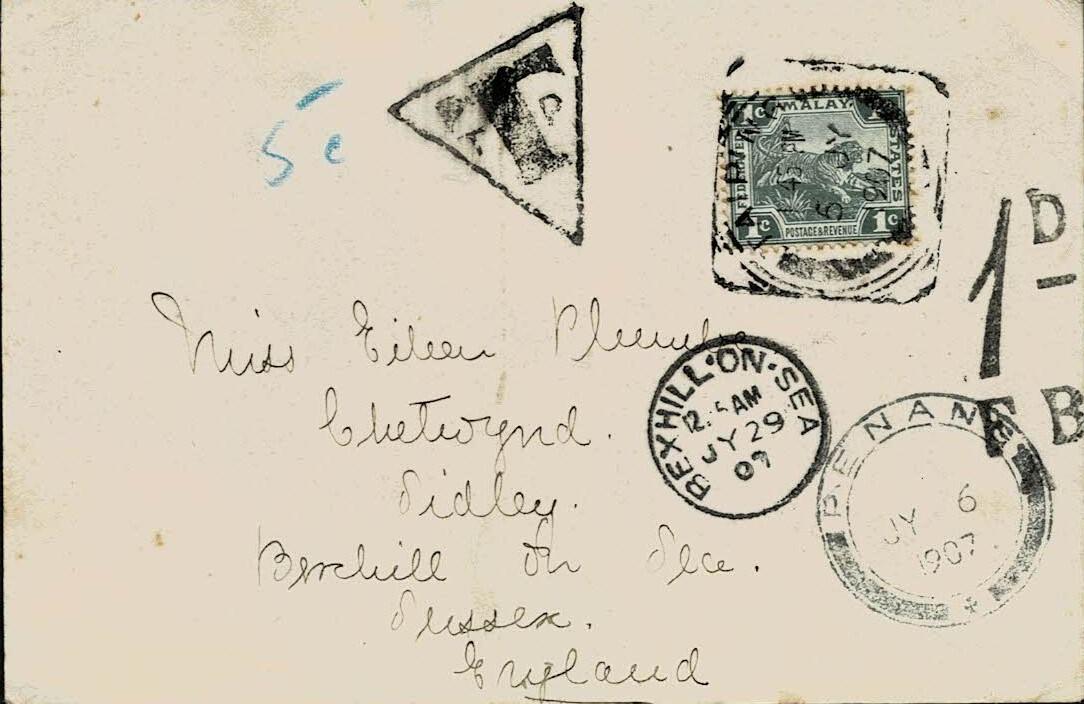 5c
T
1c MALAY 1c
FEDERATED
STATES
1c POSTAGE & REVENUE 1c
45 PM
5 JY
907
1D
F B
Miss Eileen Plumbe
Chetwynd.
Sidley.
Bexhill On Sea.
Sussex.
England
BEXHILL·ON·SEA
AM
JY 29
07
PENANG
JY 6
1907